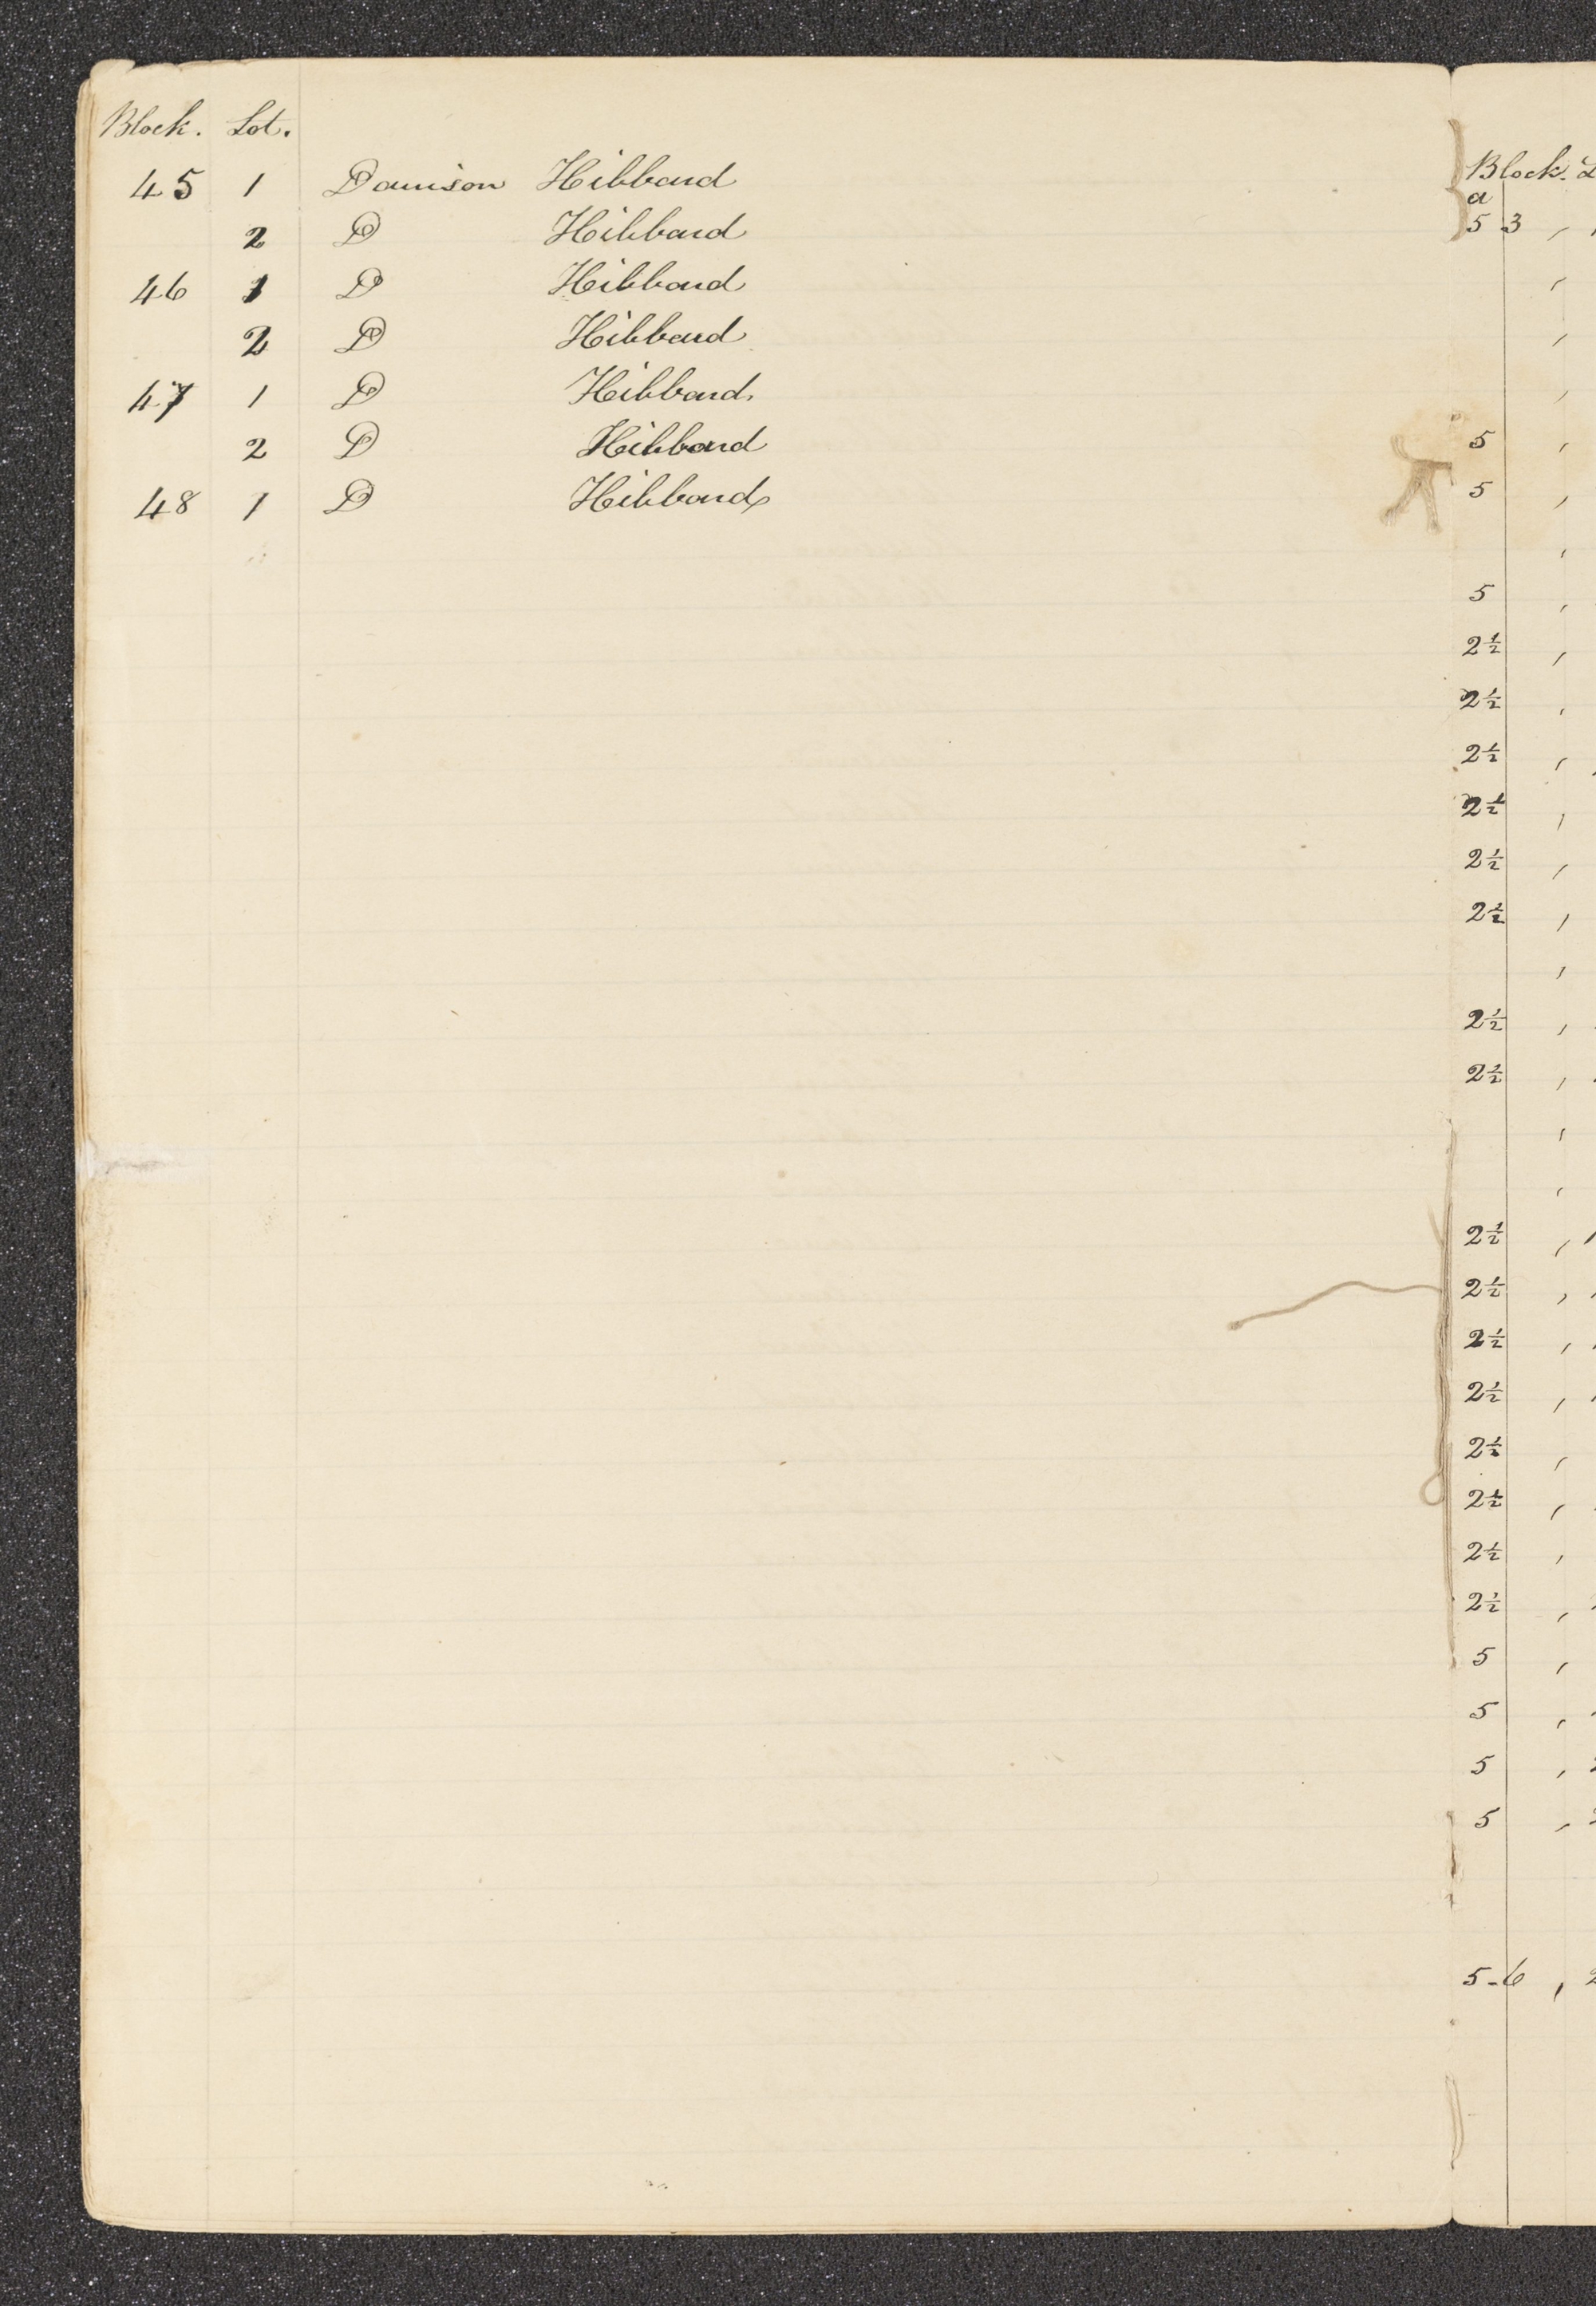 Block. Lot.
45 1 Danison Hibbard
2 D Hibbard
46 1 D Hibbard
2 D Hibbard
47 1 D Hibbard.
2 D Hibbard
48 1 D Hibbard
Block. L
a
5 3 ,
,
,
,
5 ,
5 ,
,
5 ,
2½ ,
2½ ,
2½ ,
2½ ,
2½ ,
2½ ,
,
2½ ,
2½ ,
,
,
2½ ,
2½ ,
2½ ,
2½ ,
2½ ,
2½ ,
2½ ,
2½ ,
5 ,
5 ,
5 ,
5 ,
5-6 , 2